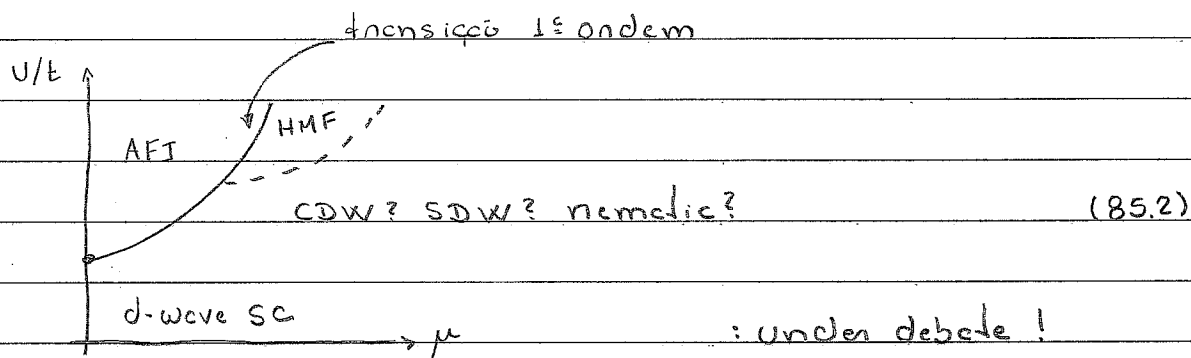 transição 1ª ordem
U/t
AFI
HMF
CDW? SDW? nematic? (85.2)
d-wave SC
μ
: under debate!